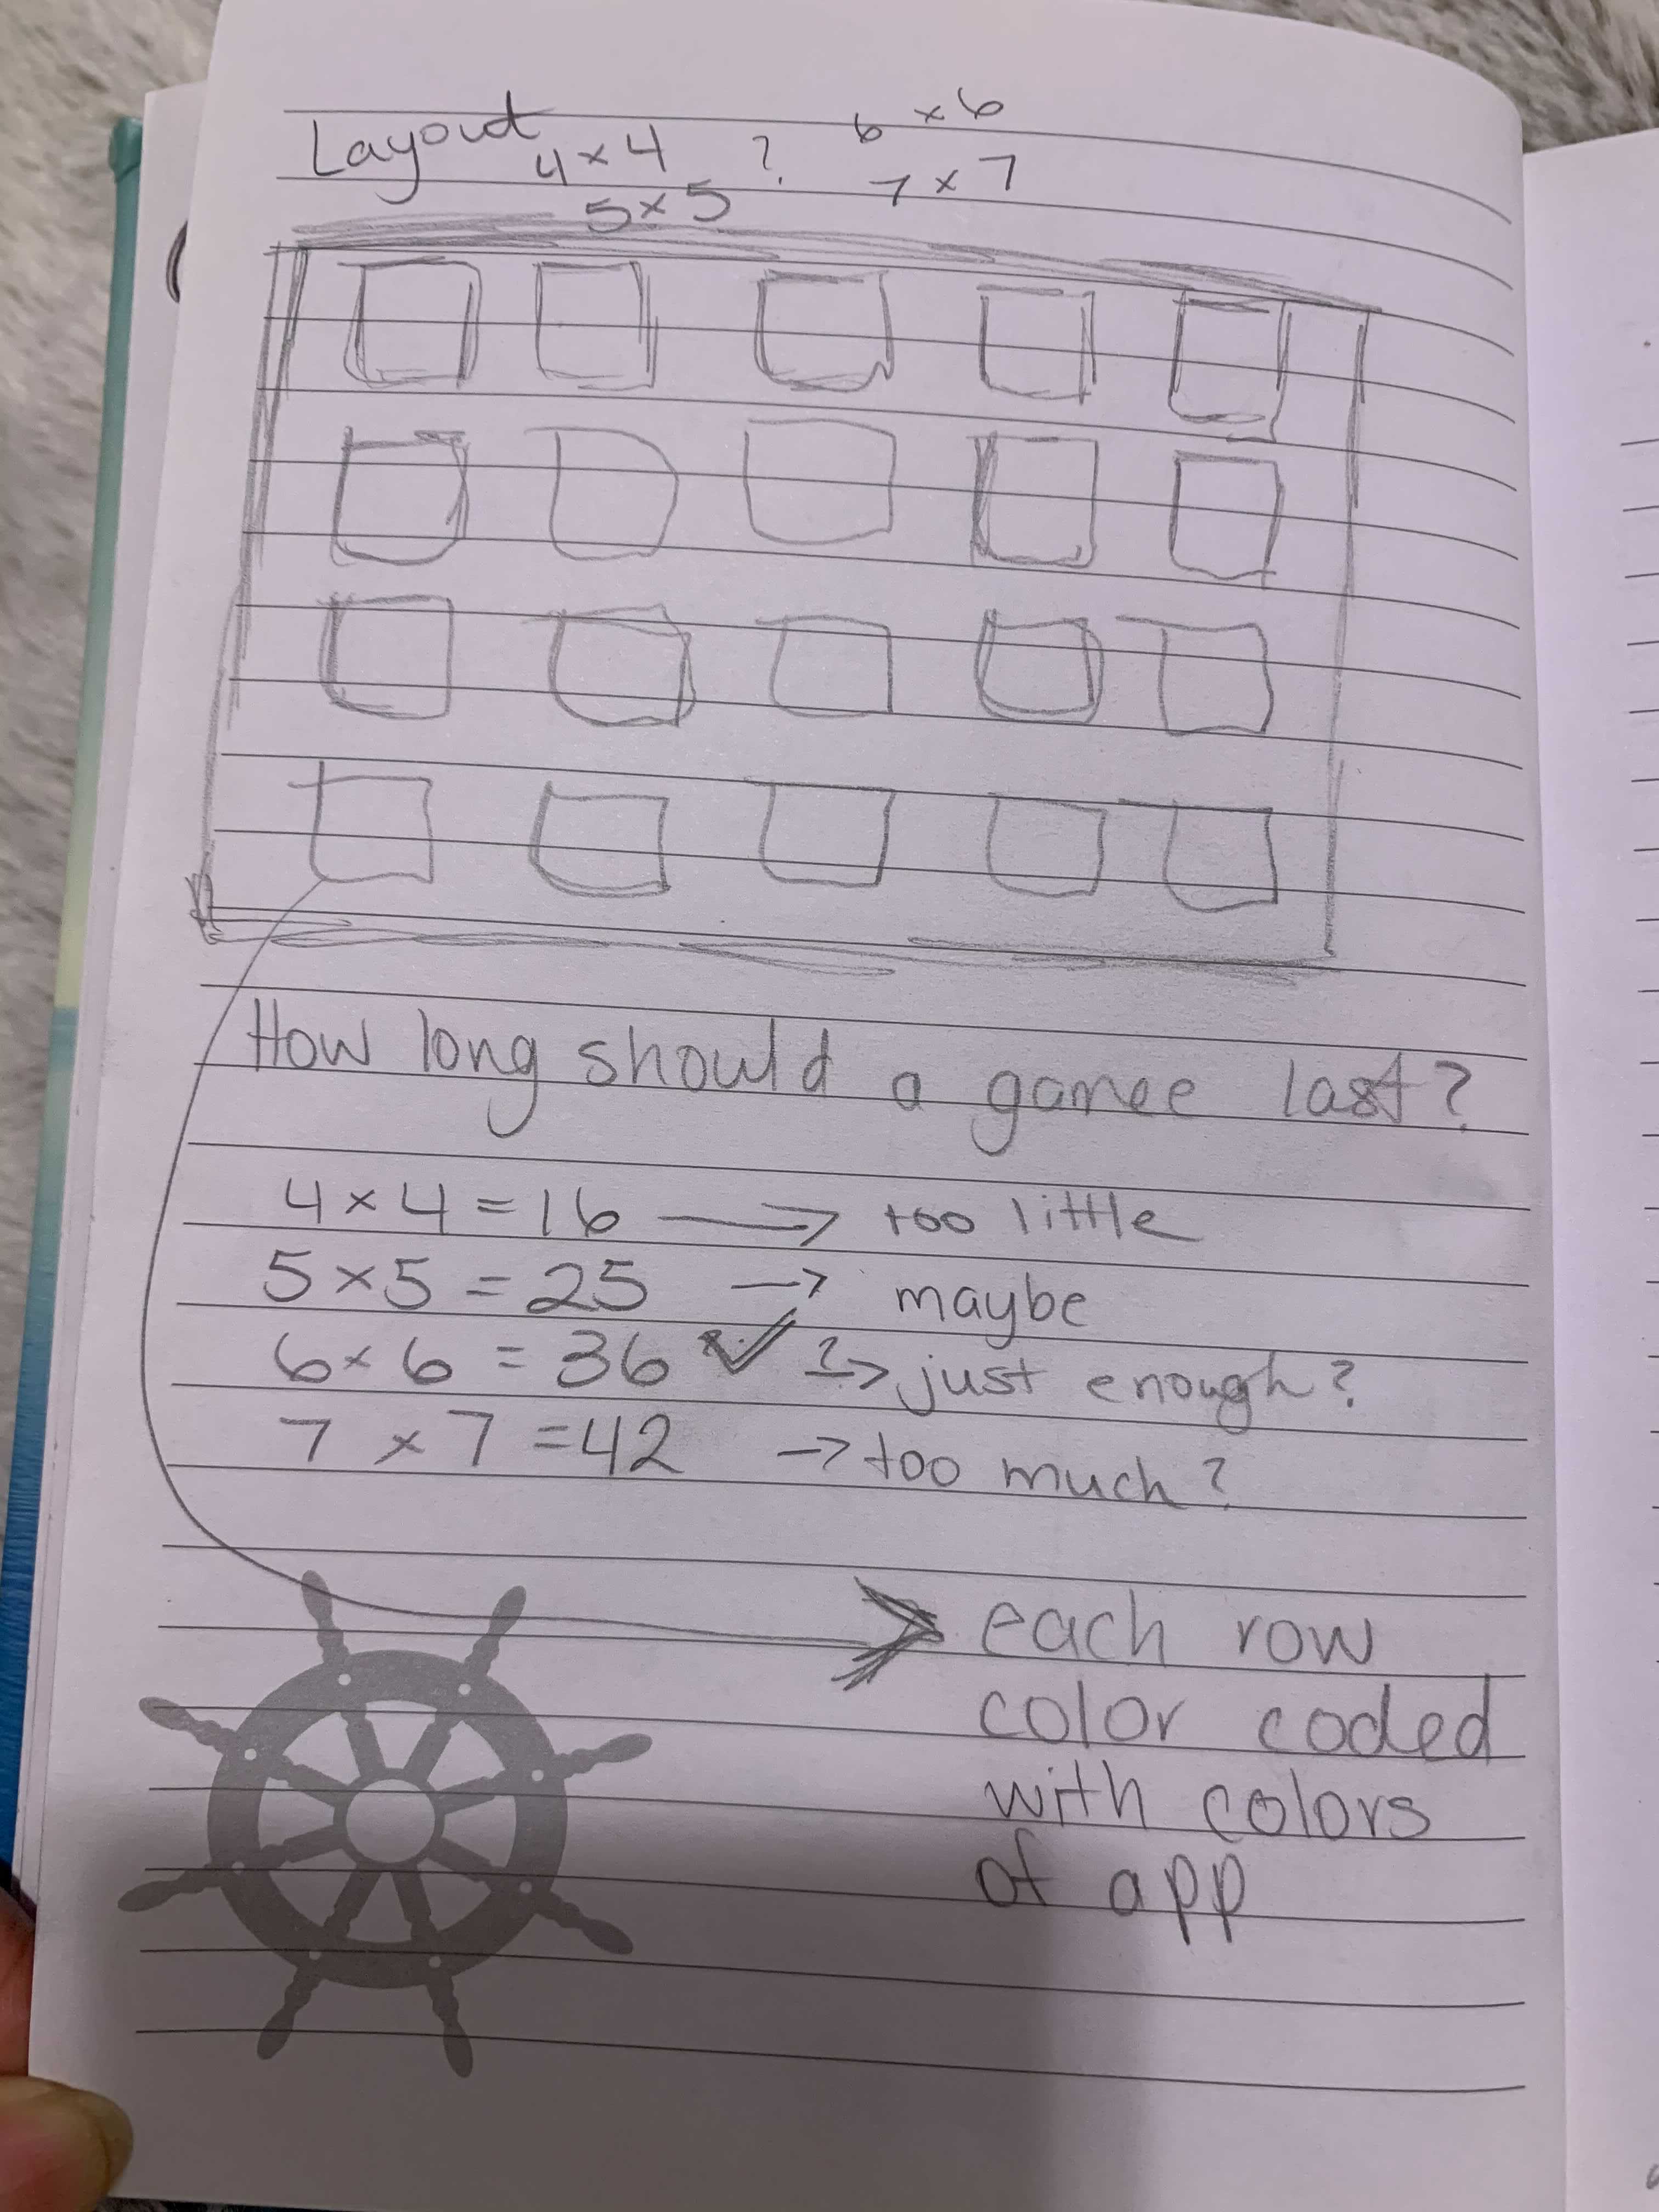 Layout
4 x 4 ? 6 x 6
5 x 5 7 x 7
How long should a gamee last?
4 x 4 = 16 → too little
5 x 5 = 25 → maybe
6 x 6 = 36 ✓ ? → just enough?
7 x 7 = 42 → too much?
each row
color coded
with colors
of app